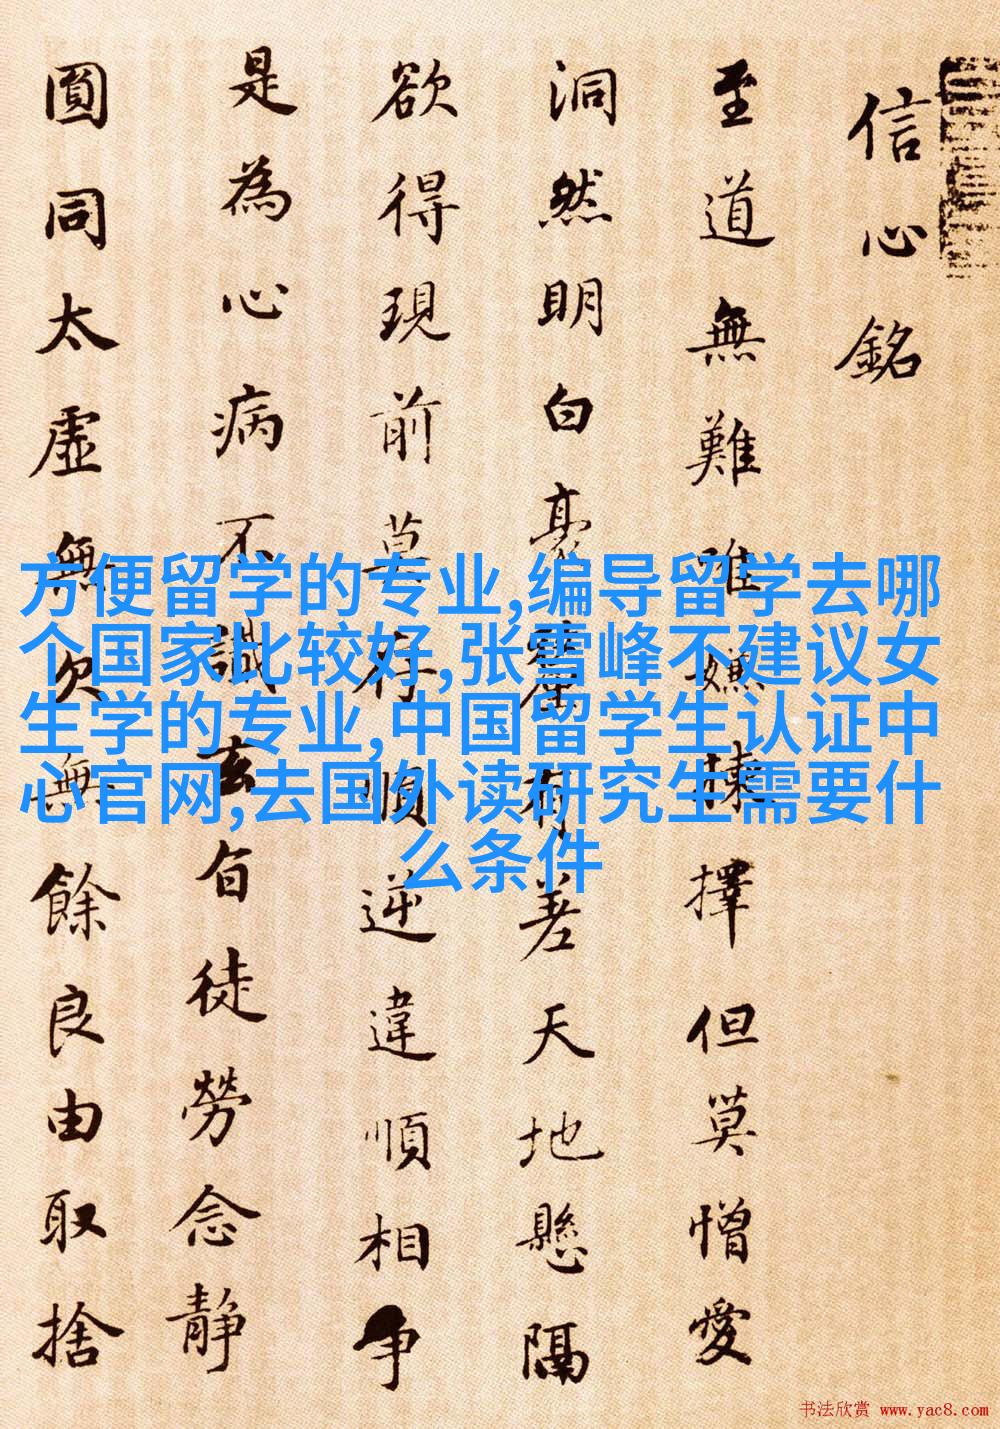 信心銘
至道無難唯嫌揀擇但莫憎愛
洞然明白毫釐有差天地懸隔
欲得現前莫存順逆違順相争
是為心病不識玄旨徒勞念静
圓同太虛無欠無餘良由取捨
方便留学的专业,编导留学去哪
个国家比较好,张雪峰不建议女
生学的专业,中国留学生认证中
心官网,去国外读研究生需要什
么条件
书法欣赏 www.yac8.com